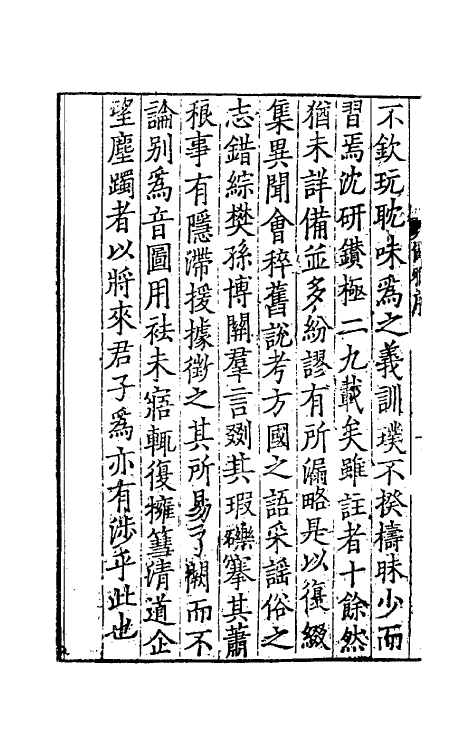 不欽玩耽味爲之義訓璞不揆檮昧少而
習焉沈研鑽極二九載矣雖註者十餘然
猶未詳備並多紛謬有所漏略是以復綴
集異聞會稡舊說考方國之語采謠俗之
志錯綜樊孫博關羣言剟其瑕礫搴其蕭
稂事有隱滯援據徵之其所易了闕而不
論别爲音圖用袪未寤輒復擁篲清道企
望塵躅者以將來君子爲亦有涉乎此也